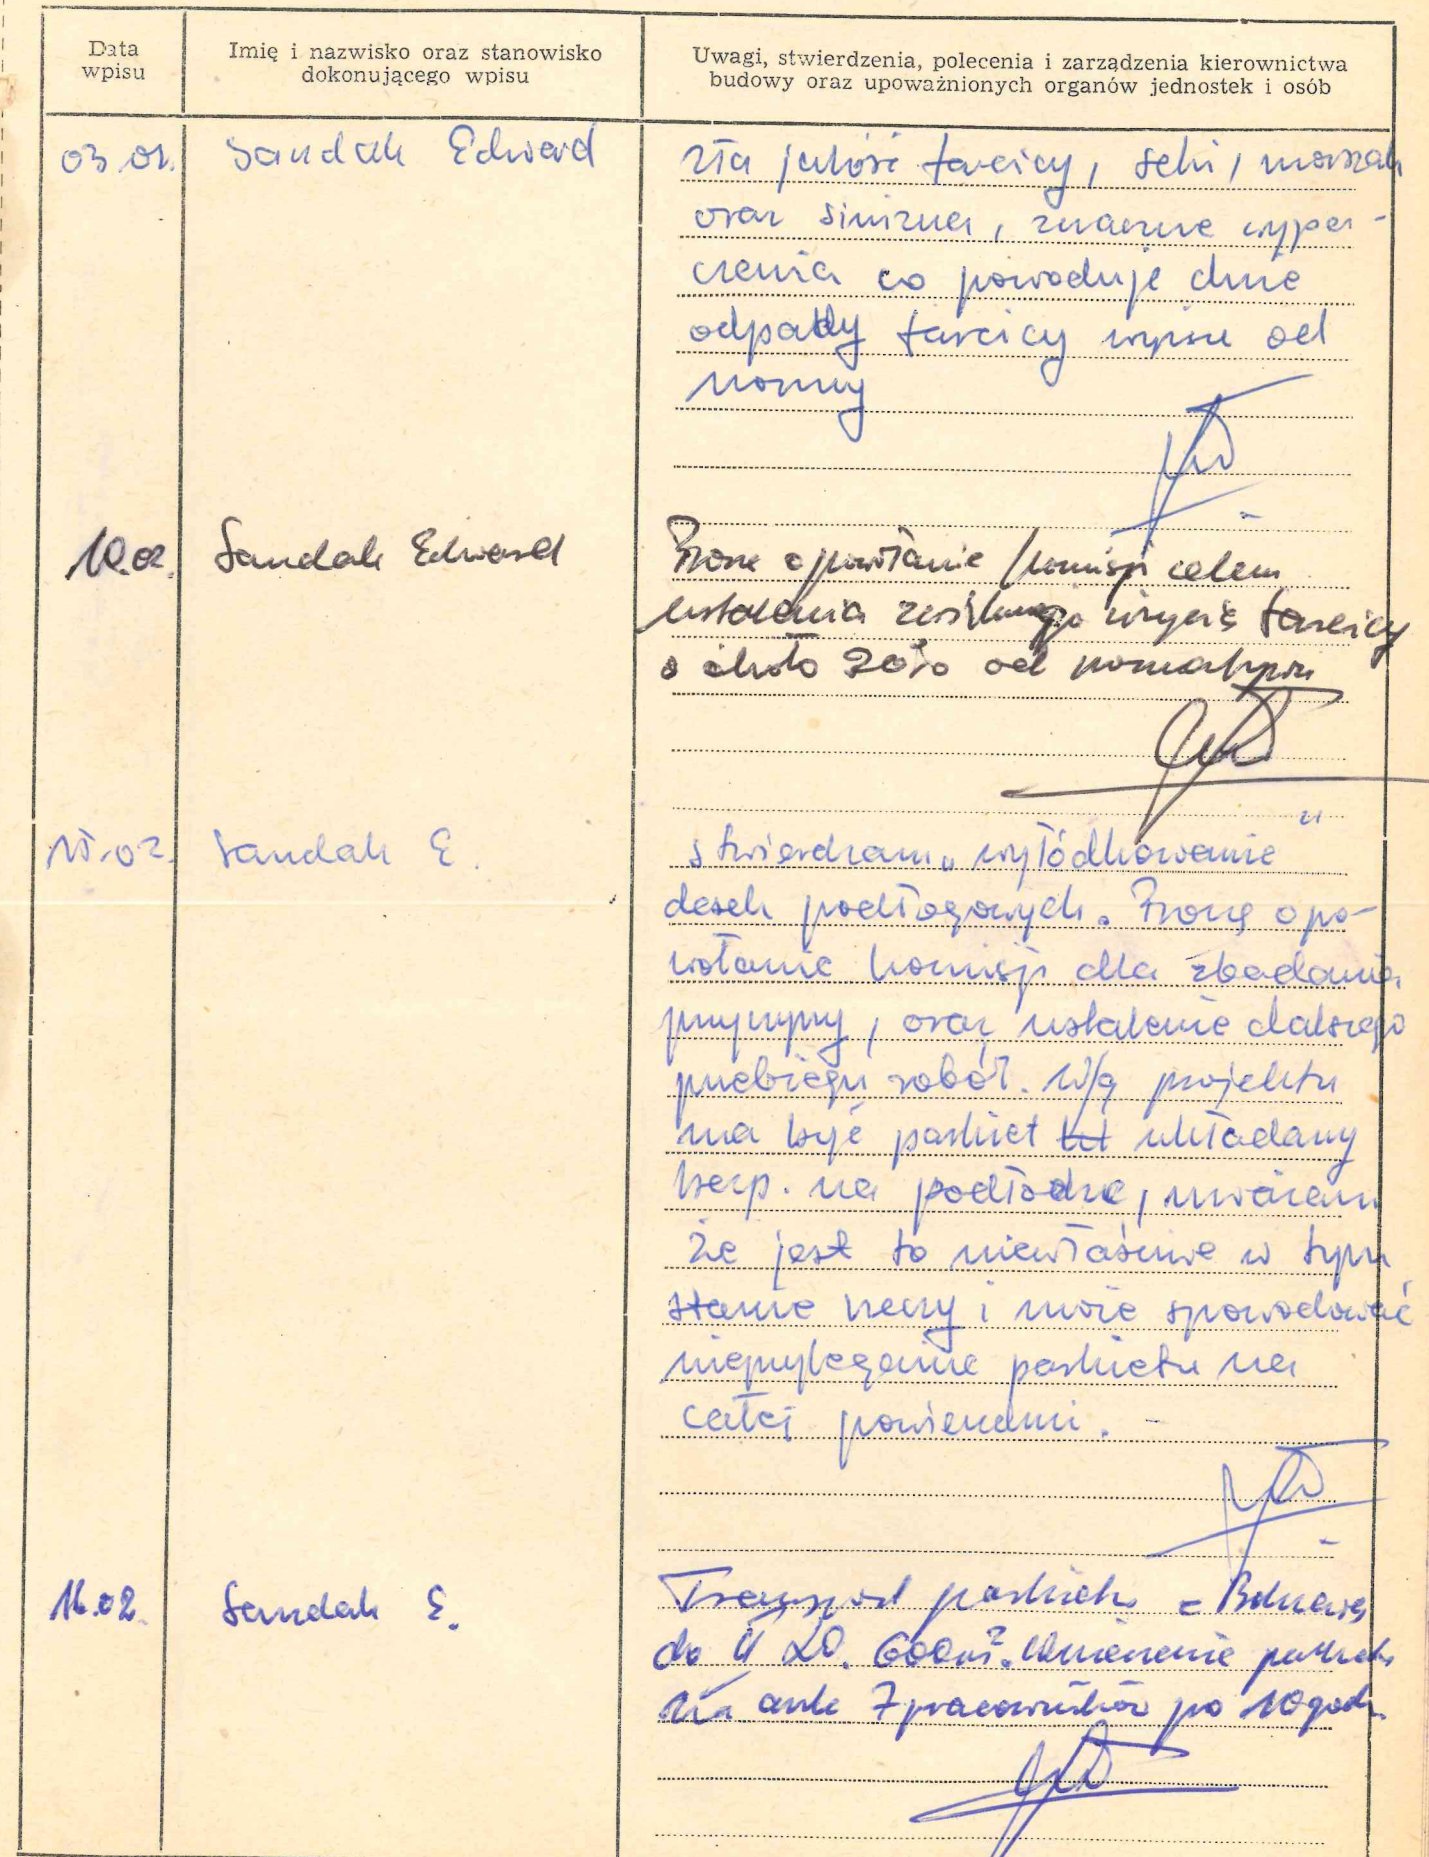 Data wpisu
Imię i nazwisko oraz stanowisko dokonującego wpisu
Uwagi, stwierdzenia, polecenia i zarządzenia kierownictwa budowy oraz upoważnionych organów jednostek i osób
03.01. Sandak Edward
zła jakość tarcicy, sęki, morszak
oraz sinizna, znaczne wypa-
czenia co powoduje duże
odpady tarcicy wyższe od
normy
10.02. Sandak Edward
Proszę o powołanie komisji celem
ustalenia zużycia tarcicy
o około 20% od
15.02. Sandak E.
stwierdzam „wyłódkowanie”
desek podłogowych. Proszę o po-
wołanie komisji dla zbadania
przyczyny, oraz ustalenie dalszego
przebiegu robót. W/g projektu
ma być parkiet układany
bezp. na podłodze, uważam
że jest to niewłaściwe w tym
stanie rzeczy i może spowodować
nieprzyleganie parkietu na
całej powierzchni. -
16.02. Sandak E.
Transport parkietu z
do 600m². Wniesienie parkietu
7 pracowników po 10 godz.